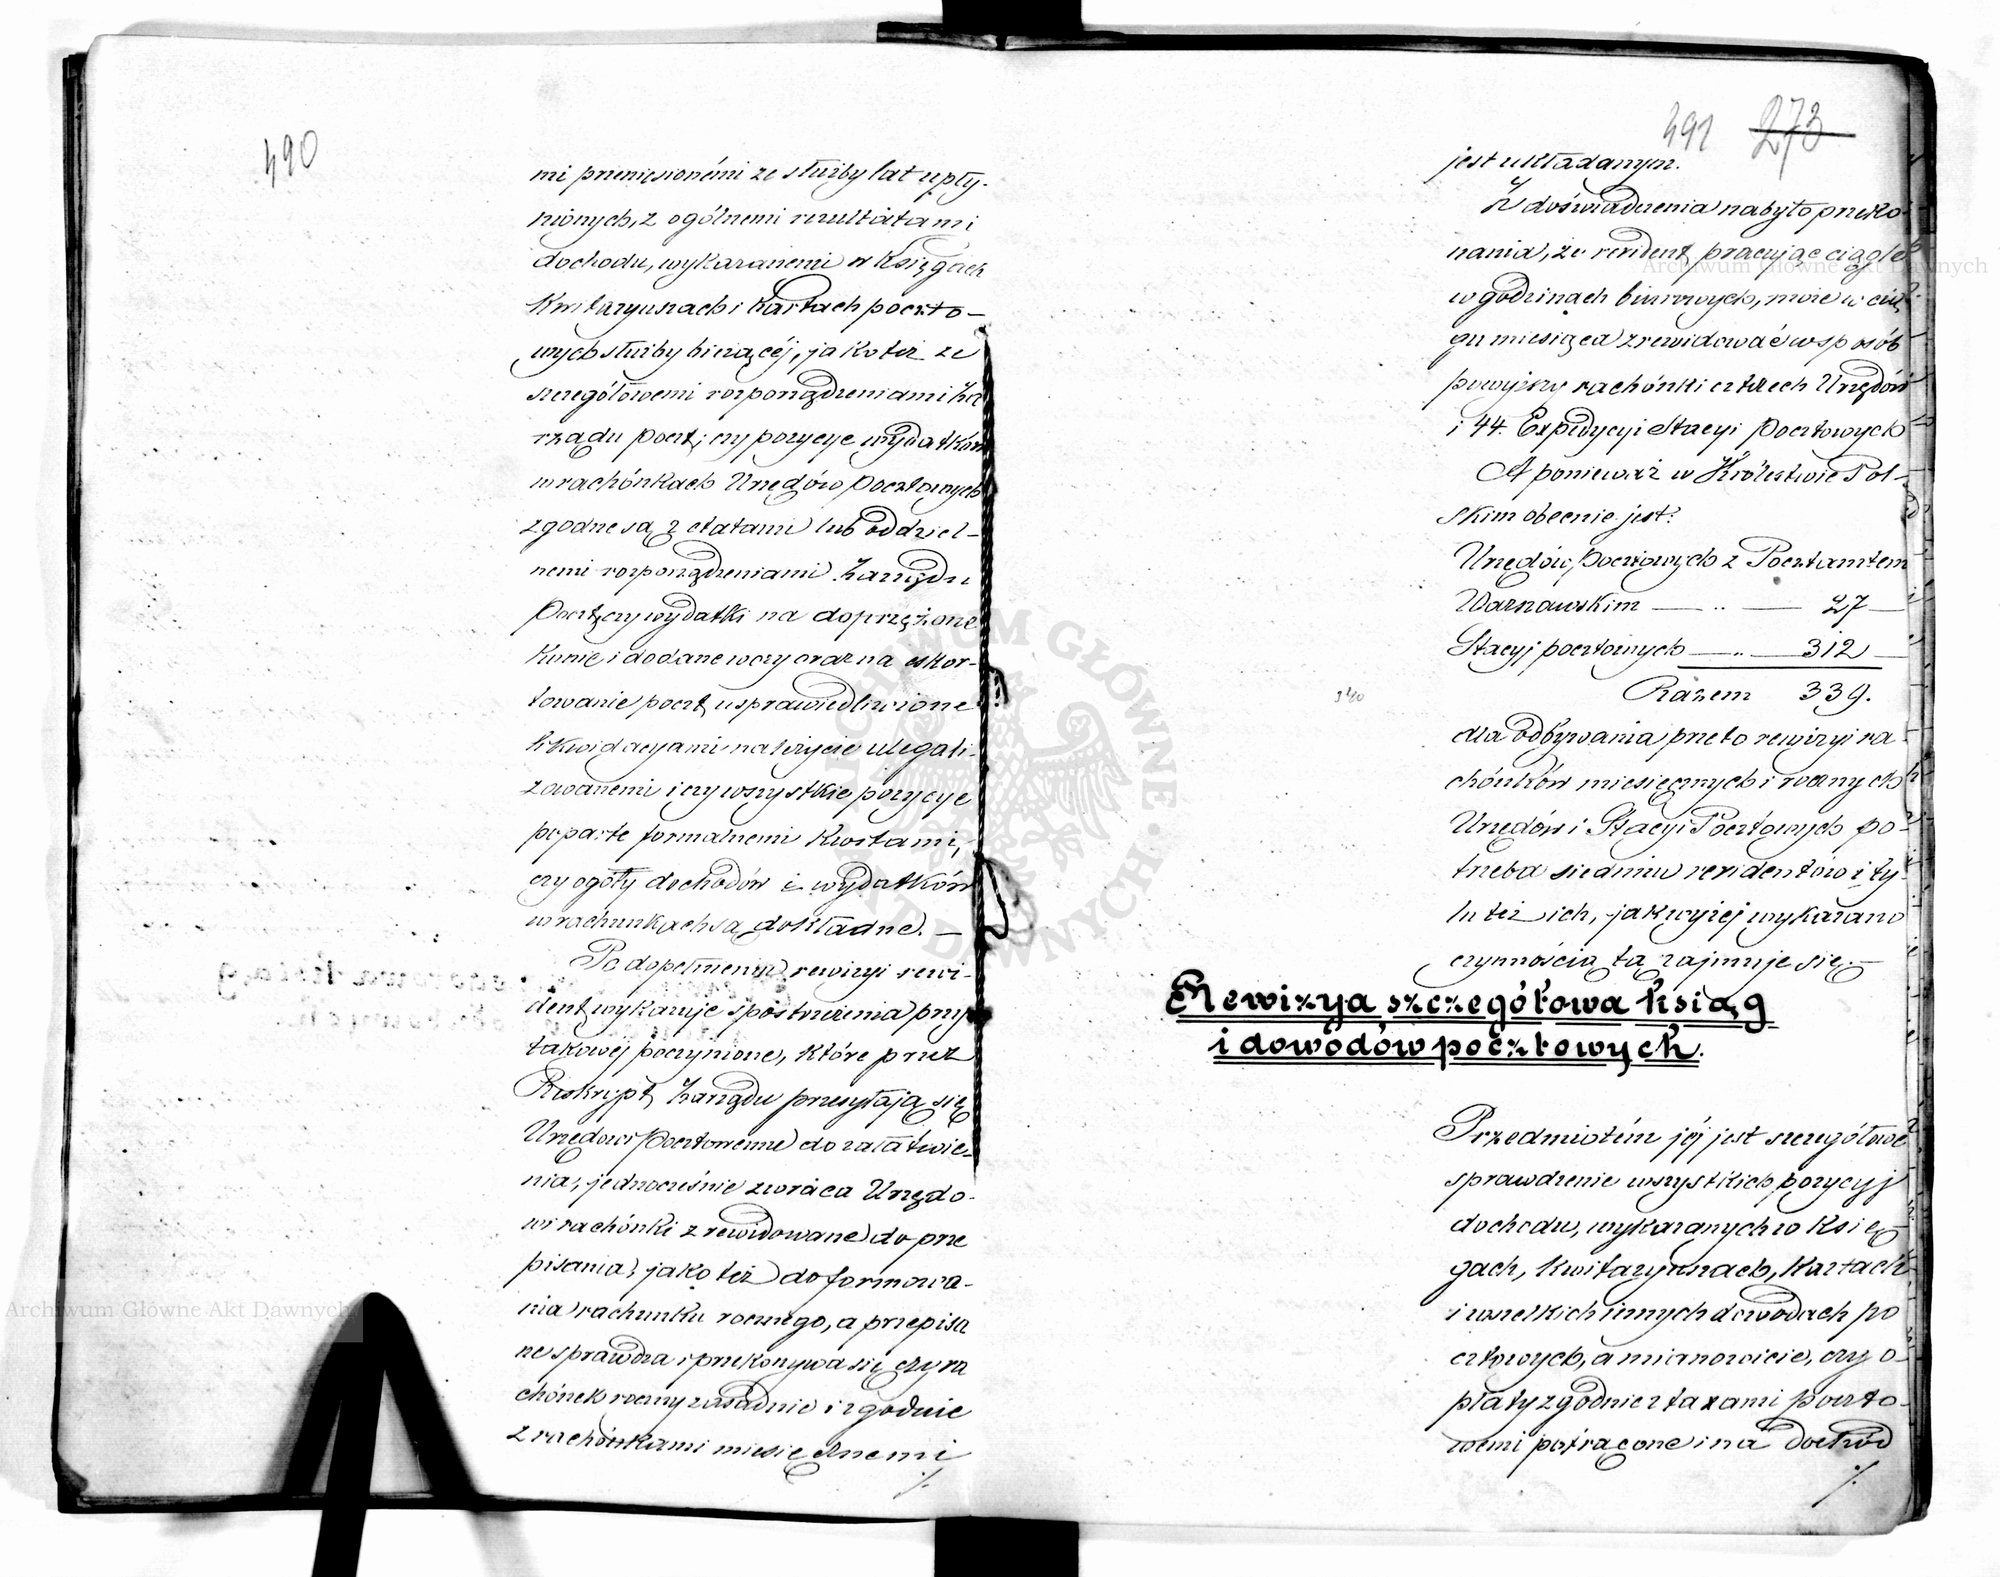 490
mi przeniesionémi ze służby lat upły-
nionych, z ogólnemi rezultatami
dochodu, wykazanemi w Księgach
Kwitaryuszach i Kartach poczto-
wych służby bieżącéj, jako też ze
szczegółowemi rozporządzeniami Za
rządu Poczt; czy pozycye wydatków
w rachónkach Urzędów Pocztowych
zgodne są z etatami lub oddziel-
nemi rozporządzeniami Zarządu
Poczt, czy wydatki na doprzężone
Konie i dodane wozy oraz na eskor-
towanie poczt, usprawiedliwione
likwidacyami należycie ulegali-
zowanemi i czy wszystkie pozycye
poparte formalnemi Kwitami,
czy ogóły dochodów i wydatków
w rachunkach są dokładne. —
Po dopełnieniu rewizyi rewi-
dent wykazuje spostrzeżenia przy
takowéj poczynione, które przez
Reskrypt Zarządu przesyłają się
Urzędowi Pocztowemu do załatwie-
nia, jednocześnie zwraca Urzędo-
wi rachónki zrewidowane do prze
pisania, jako też do formowa-
nia rachunku rocznego, a przepisa
ne sprawdza i przekonywa się czy ra
chónek roczny zasadnie i zgodnie
z rachónkami miesięcznemi
./.
491 273
jest układanym.
Z doświadczenia nabyto przeko-
nania, że rewident, pracując ciągle
w godzinach biurowych, może w cią-
gu miesiąca zrewidować w sposób
powyższy rachónki cztérech Urzędów
i 44. Expedycyi Stacyi Pocztowych
A ponieważ w Królestwie Pol-
skim obecnie jest:
Urzędów Pocztowych z Pocztamtem
Warszawskim — .. — 27 —
Stacyj pocztowych — .. — 312 —
Razem 339.
340
dla odbywania przeto rewizyi ra-
chónków miesięcznych i rocznych
Urzędów i Stacyi Pocztowych po-
trzeba siedmiu rewidentów i ty-
lu też ich, jak wyżej wykazano
czynnością tą zajmuje się. —
Rewizya szczegółowa ksiąg
i dowodów pocztowych.
Przedmiotém jéj jest szczegółowe
sprawdzenie wszystkich pozycyj
dochodu, wykazanych w Księ-
gach, Kwitaryuszach, Kartach
i wszelkich innych dowodach po
cztowych, a mianowicie, czy o-
płaty zgodnie z taxami poczto-
wemi potrącone i na dochód
./.